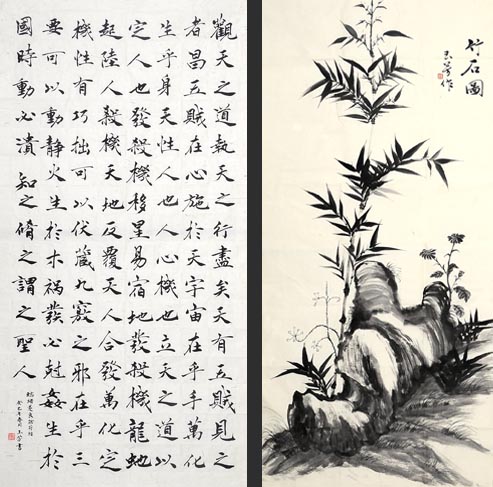 觀天之道執天之行盡矣天有五賊見之
者昌五賊在心施於天宇宙在乎手萬化
生乎身天性人也人心機也立天之道以
定人也發殺機移星易宿地發殺機龍蛇
起陸人殺機天地反覆天人合發萬化定
機性有巧拙可以伏藏九竅之邪在乎三
要可以動靜火生於木禍發必尅姦生於
國時動必潰知之脩之謂之聖人
竹石圖